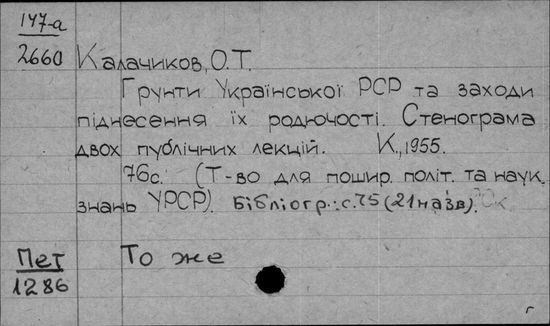 147-а
2660 Калачиков, О.Т.
Грунти Української РСР та заходи
піднесення їх родючості. Стенограма
двох публічних лекцій. К., 1955.
76с. (Т-во для пошир. політ. та наук.
знань УРСР). Бібліогр.: с.75 (21 назв).
Пет То же
1286
г